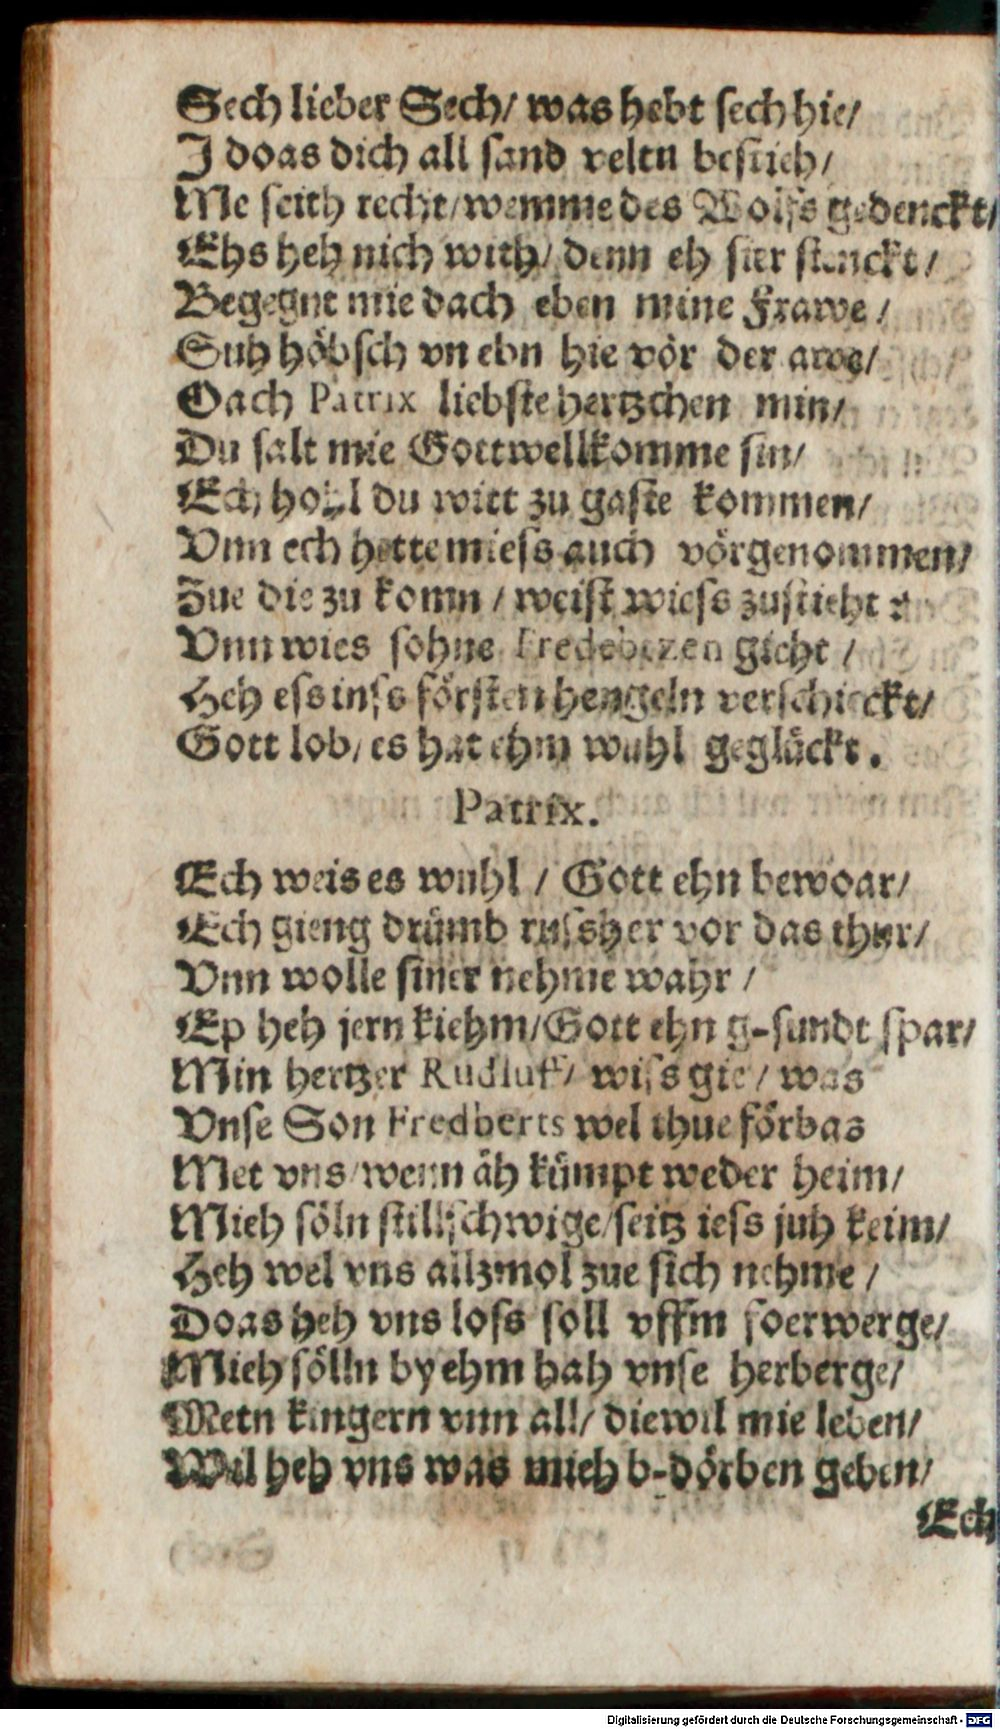 Sech lieber Sech/ was hebt sech hie/
J doas dich all sand veltn bestieh/
Me seith recht/wemme des Wolfs gedenckt/
Ehs heh nich with/ denn eh sier stinckt/
Begegnt mie dach eben mine Frawe/
Suh höbsch vn ebn hie vör der awe/
Oach Patrix liebste hertzchen min/
Du salt mie Gottwellkomme sin/
Ech hohl du witt zu gaste kommen/
Vnn ech hette miess auch vörgenommen/
Zue die zu komn / weist wiess zustieht
Vnn wies sohne gicht /
Heh ess inss försten hengeln verschickt/
Gott lob/ es hat ehm wuhl geglückt.
Patrix.
Ech weis es wuhl / Gott ehn bewoar/
Ech gieng drümb russher vor das thur/
Vnn wolle siner nehme wahr /
Ep heh jern kiehm/Gott ehn g-sundt spar/
Min hertzer Rudluff/ wiss gie / was
Vnse Son Fredberts wel thue förbas
Met vns/wenn äh kümpt weder heim/
Mieh söln stillschwige/seitz iess juh keim/
Heh wel vns allzmol zue sich nehme /
Doas heh vns loss soll vffm foerwerge/
Mieh sölln by ehm hah vnse herberge/
Metn kingern vnn all/ diewil mie leben/
Wil heh vns was mieh b-dörben geben/
Ech
Digitalisierung gefördert durch die Deutsche Forschungsgemeinschaft - DFG